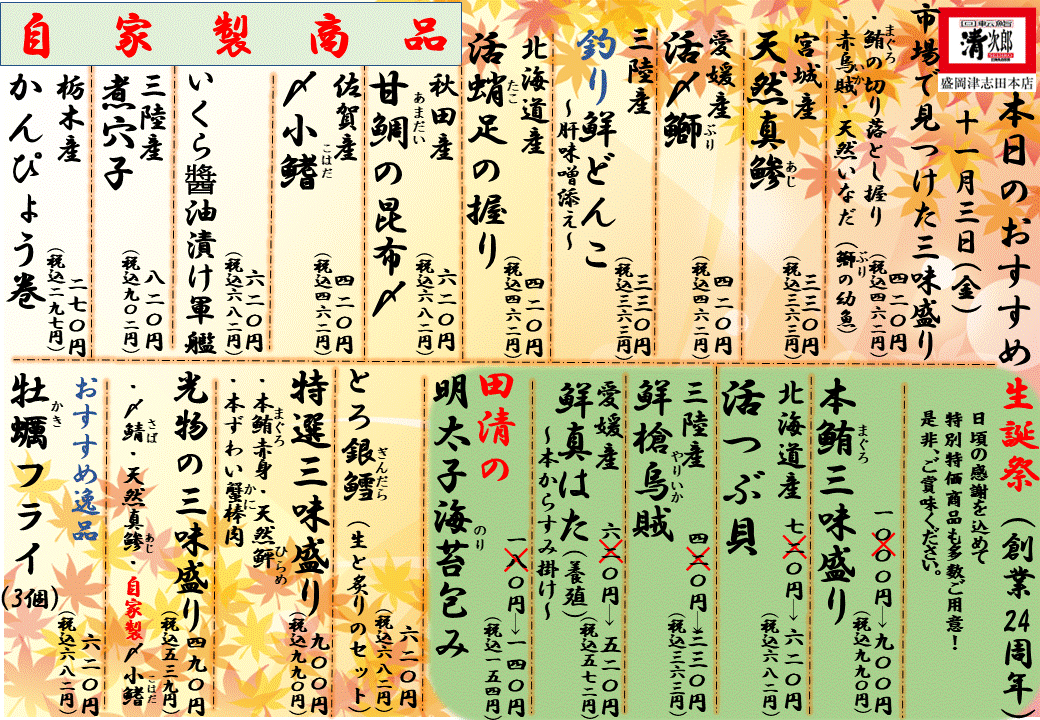 回転鮨
清次郎
盛岡津志田本店
本日のおすすめ
十一月三日(金)
市場で見つけた三味盛り
・鮪の切り落とし握り
まぐろ
・赤烏賊・天然いなだ(鰤の幼魚)
いか
ぶり
四二〇円
(税込四六二円)
宮城産
天然真鯵
あじ
三三〇円
(税込三六三円)
愛媛産
活〆鰤
ぶり
四二〇円
(税込四六二円)
三陸産
釣り鮮どんこ
~肝味噌添え~
三三〇円
(税込三六三円)
北海道産
活蛸足の握り
たこ
四二〇円
(税込四六二円)
自家製商品
秋田産
甘鯛の昆布〆
あまだい
六二〇円
(税込六八二円)
佐賀産
〆小鰭
こはだ
四二〇円
(税込四六二円)
いくら醬油漬け軍艦
六二〇円
(税込六八二円)
三陸産
煮穴子
八二〇円
(税込九〇二円)
栃木産
かんぴょう巻
二七〇円
(税込二九七円)
生誕祭(創業24周年)
日頃の感謝を込めて
特別特価商品も多数ご用意!
是非、ご賞味ください。
本鮪三味盛り
まぐろ
一〇〇〇円→九〇〇円
(税込九九〇円)
北海道産
活つぶ貝
七二〇円→六二〇円
(税込六八二円)
三陸産
鮮槍烏賊
やりいか
四二〇円→三三〇円
(税込三六三円)
愛媛産
鮮真はた(養殖)
~本からすみ掛け~
六二〇円→五二〇円
(税込五七二円)
田清の
明太子海苔包み
のり
一八〇円→一四〇円
(税込一五四円)
とろ銀鱈(生と炙りのセット)
ぎんだら
六二〇円
(税込六八二円)
特選三味盛り
・本鮪赤身・天然鮃
まぐろ
ひらめ
・本ずわい蟹棒肉
かに
九〇〇円
(税込九九〇円)
光物の三味盛り
・〆鯖・天然真鯵・自家製〆小鰭
さば
あじ
こはだ
四九〇円
(税込五三九円)
おすすめ逸品
牡蠣フライ(3個)
かき
六二〇円
(税込六八二円)